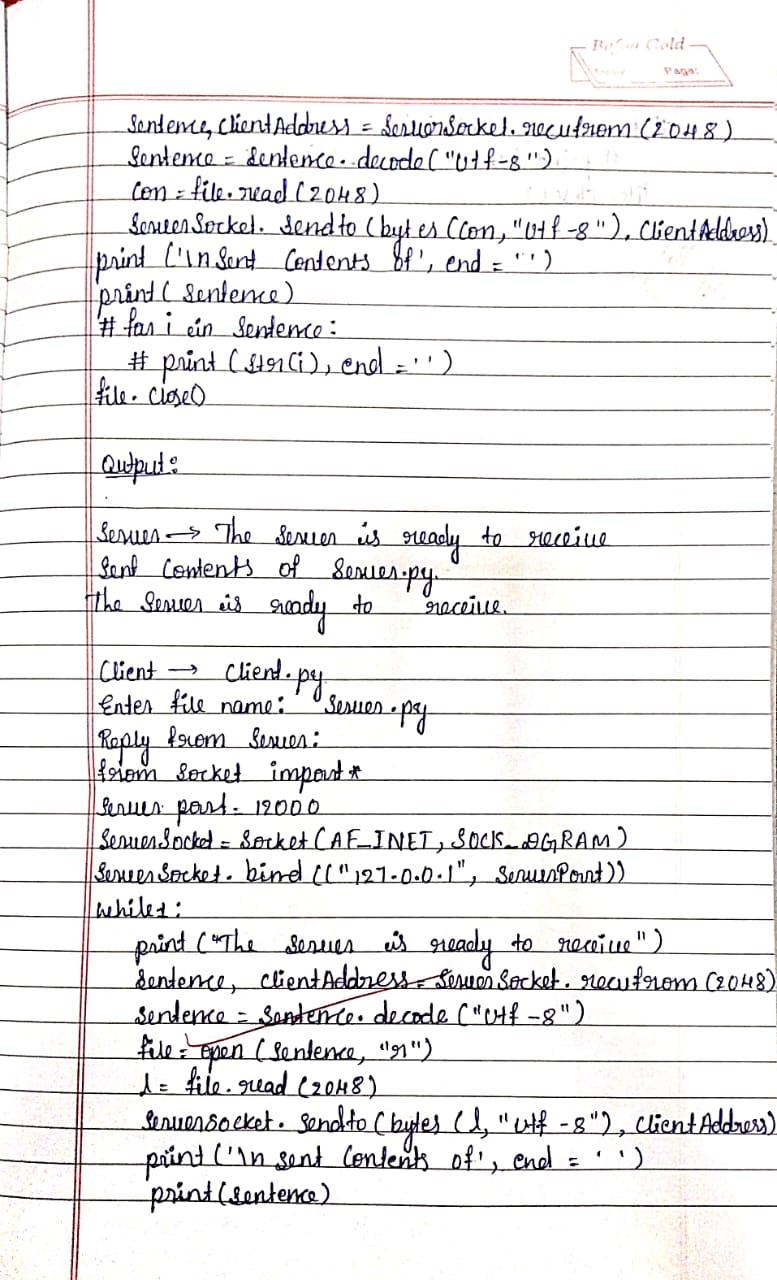 Page:
Sentence, ClientAddress = ServerSocket.recvfrom(2048)
Sentence = Sentence.decode("utf-8")
Con = file.read(2048)
ServerSocket.Sendto(bytes(Con,"utf-8"), ClientAddress)
print('\n Sent Contents of', end = ' ')
print(Sentence)
# for i in Sentence:
# print(str(i), end = '')
file.close()
Output:
Server → The Server is ready to receive
Sent Contents of Server.py.
The Server is ready to receive.
Client → Client.py
Enter file name: Server.py
Reply from Server:
from Socket import *
Server port = 12000
ServerSocket = Socket(AF_INET, SOCK_DGRAM)
ServerSocket.bind(("127.0.0.1", ServerPort))
while 1:
print("The Server is ready to receive")
Sentence, ClientAddress = ServerSocket.recvfrom(2048)
sentence = Sentence.decode("utf-8")
file = open(Sentence, "r")
l = file.read(2048)
ServerSocket.Sendto(bytes(l, "utf-8"), ClientAddress)
print('\n sent Contents of', end = ' ')
print(sentence)